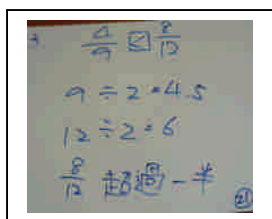 3. 4/9 < 8/12
9 ÷ 2 = 4.5
12 ÷ 2 = 6
8/12
21